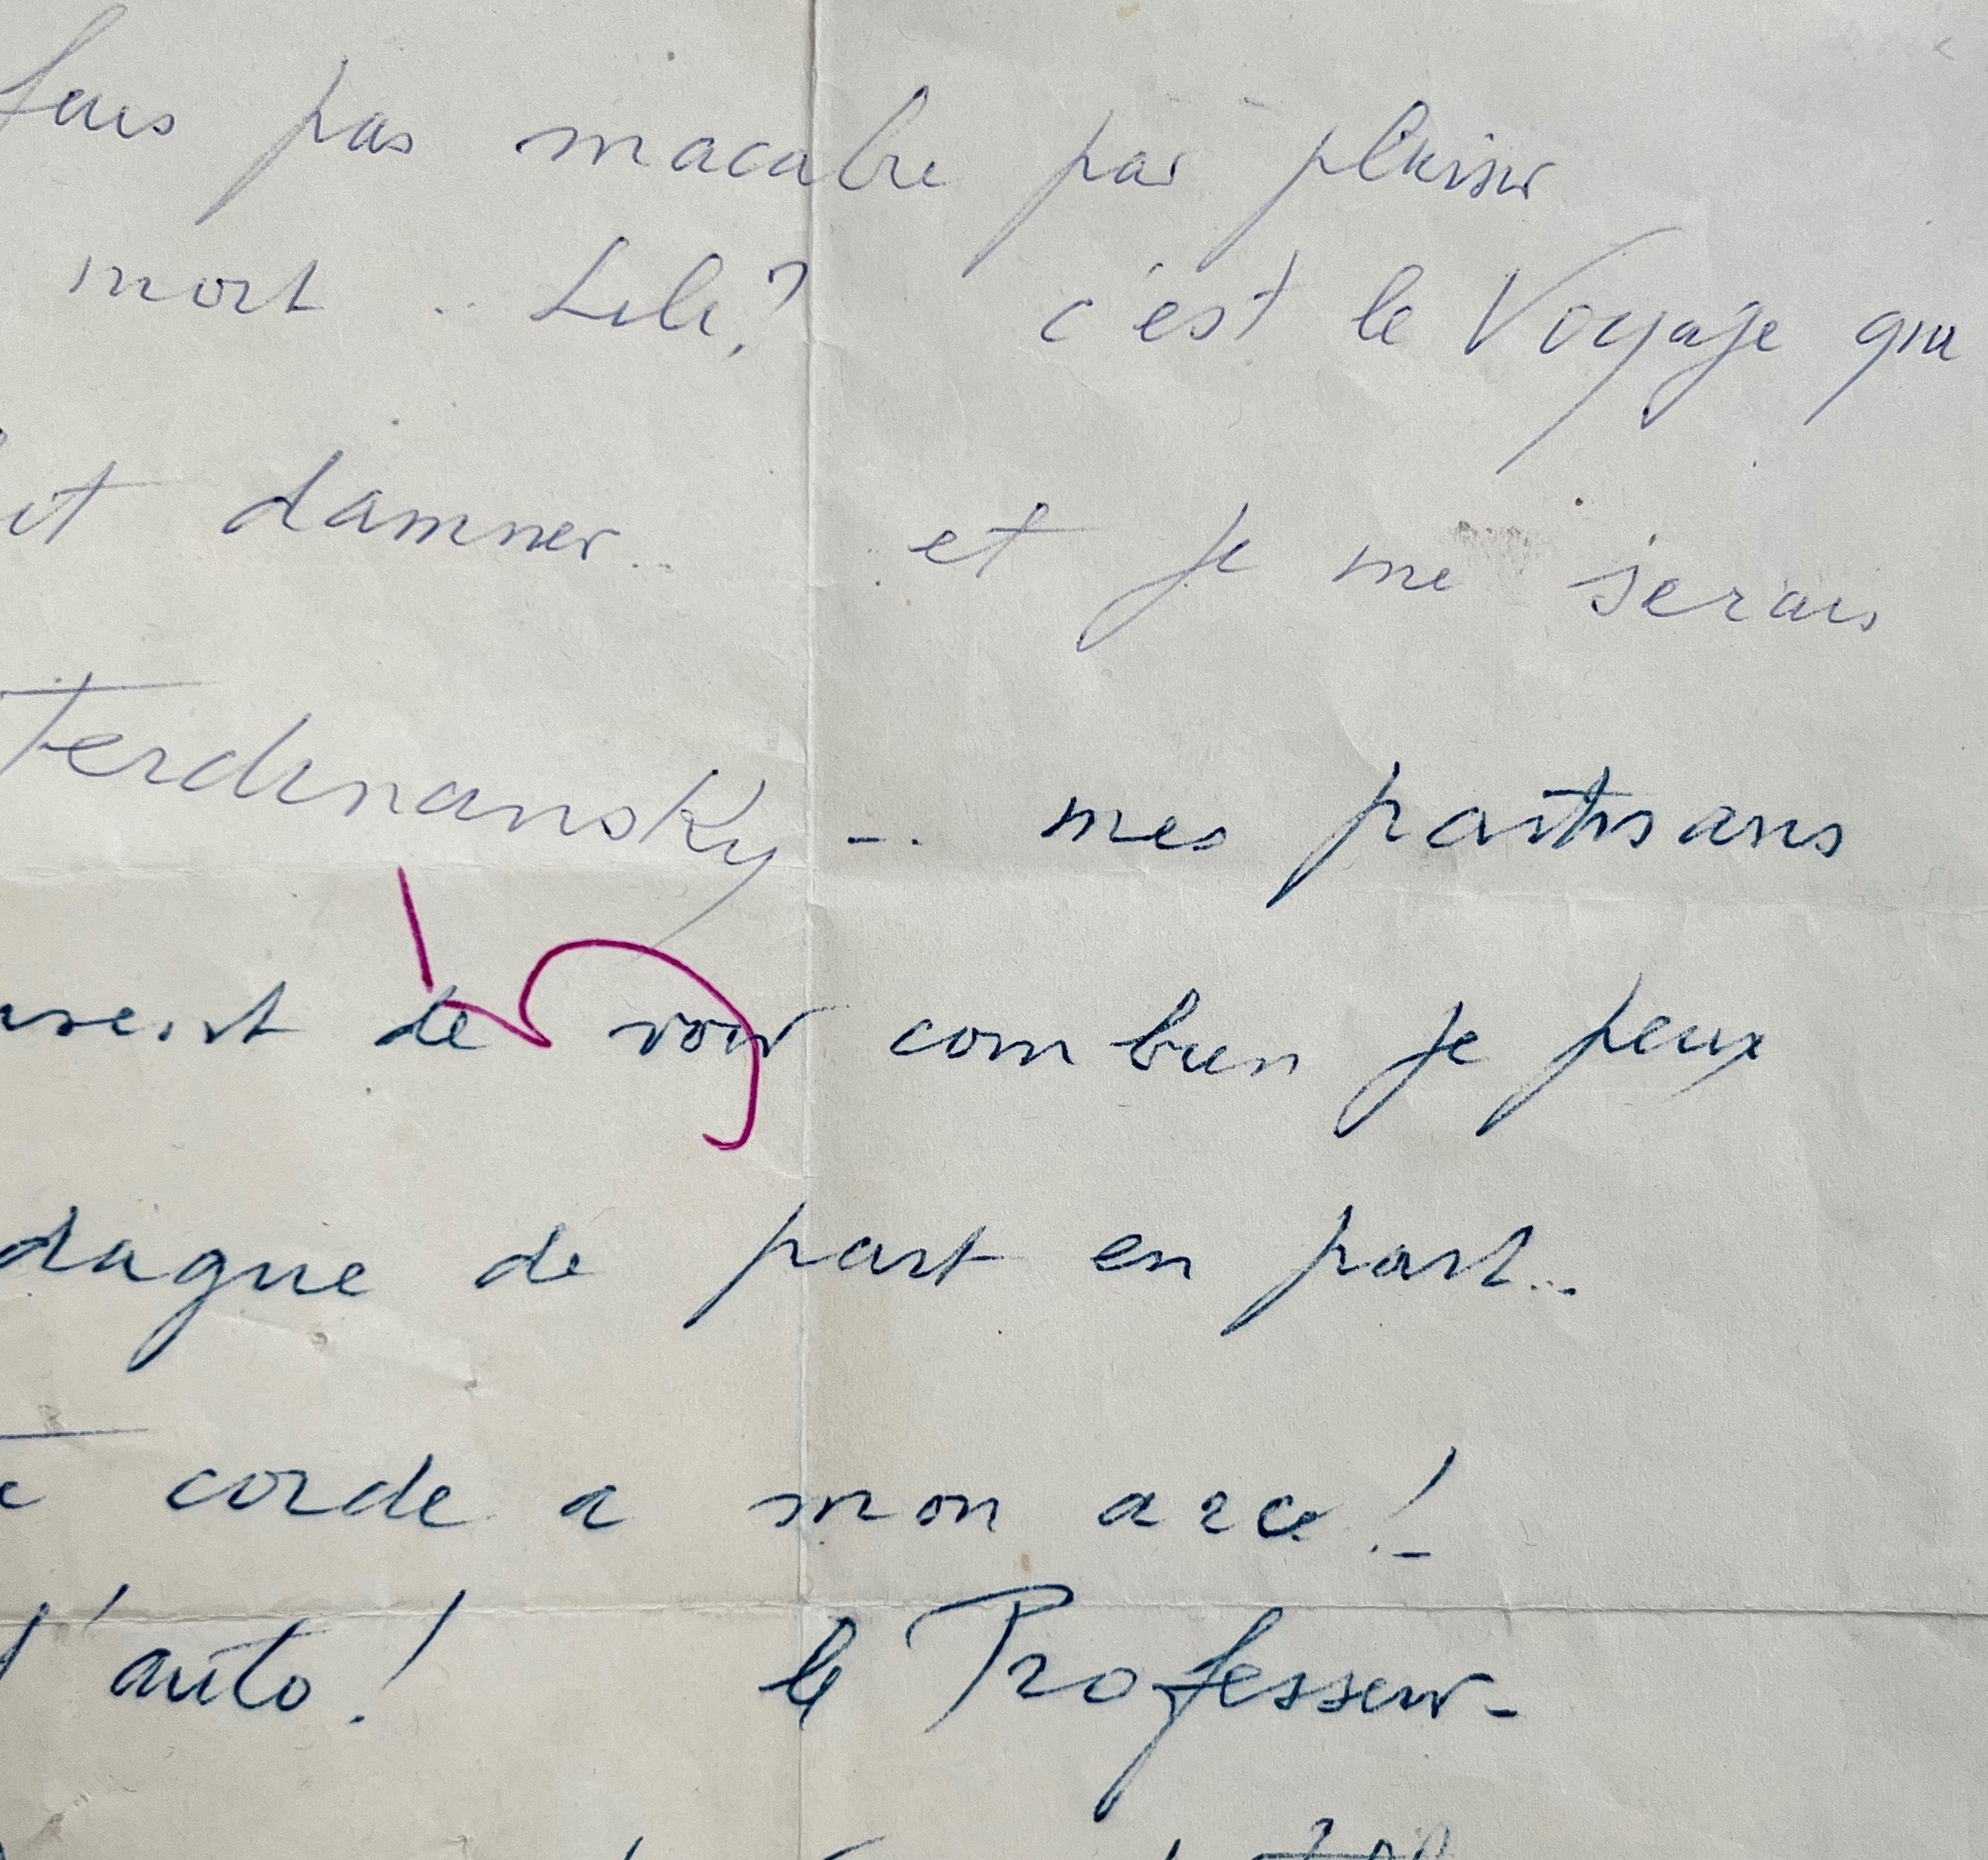 fais pas macabre par plaisir
mort .. Lili? c'est le Voyage qui
damner... et je me serais
Ferdinansky -.. mes partisans
de voir combien je peux
dague de part en part...
corde a mon arc !
l'auto ! le Professeur-